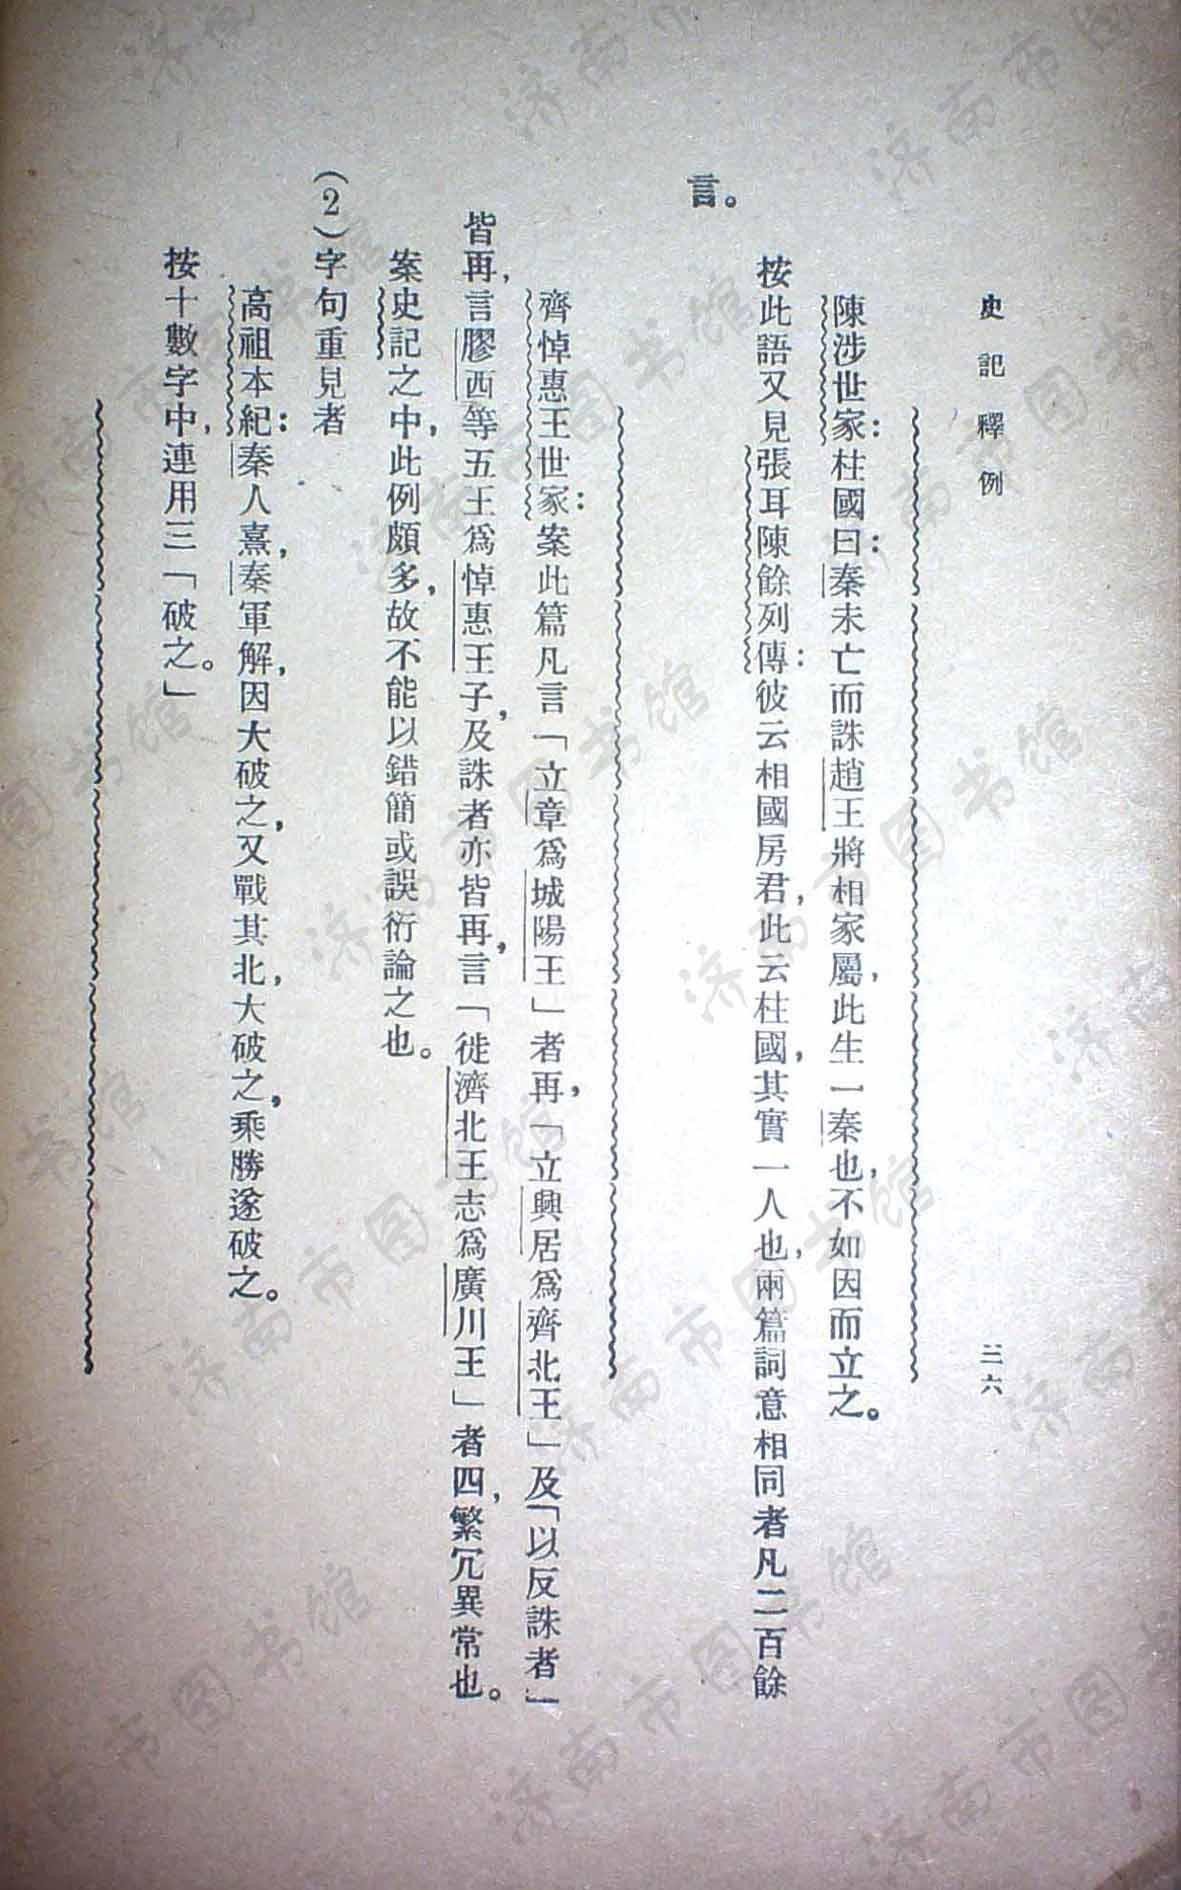 史記釋例
三六
陳涉世家：柱國曰：秦未亡而誅趙王將相家屬，此生一秦也，不如因而立之。
按此語又見張耳陳餘列傳：彼云相國房君，此云柱國，其實一人也，兩篇詞意相同者凡二百餘
言。
齊悼惠王世家：案此篇凡言「立章爲城陽王」者再，「立興居爲齊北王」及「以反誅者」
皆再，言膠西等五王爲悼惠王子，及誅者亦皆再，言「徙濟北王志爲廣川王」者四，繁冗異常也。
案史記之中，此例頗多，故不能以錯簡或誤衍論之也。
(2)字句重見者
高祖本紀：秦人憙，秦軍解，因大破之，又戰其北，大破之，乘勝遂破之。
按十數字中，連用三「破之。」